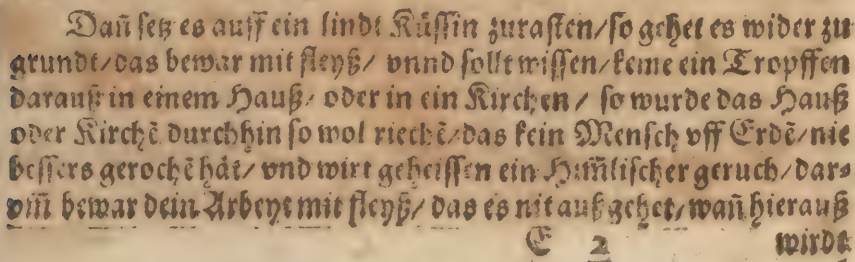 Dañ setz es auff ein lindt Küssin zurasten/so gehet es wider zu
grundt/das bewar mit fleyß/ vnnd sollt wissen/keme ein Tropffen
darauß in einem Hauß/ oder in ein Kirchen / so wurde das Hauß
oder Kirchẽ durchhin so wol riechẽ/das kein Mensch vff Erdẽ/nie
bessers gerochẽ hät/ vnd wirt geheissen ein Him̃lischer geruch/dar⸗
vm̃ bewar dein Arbeyt mit fleyß/ das es nit außgehet/wañ hierauß
E 2 wirdt